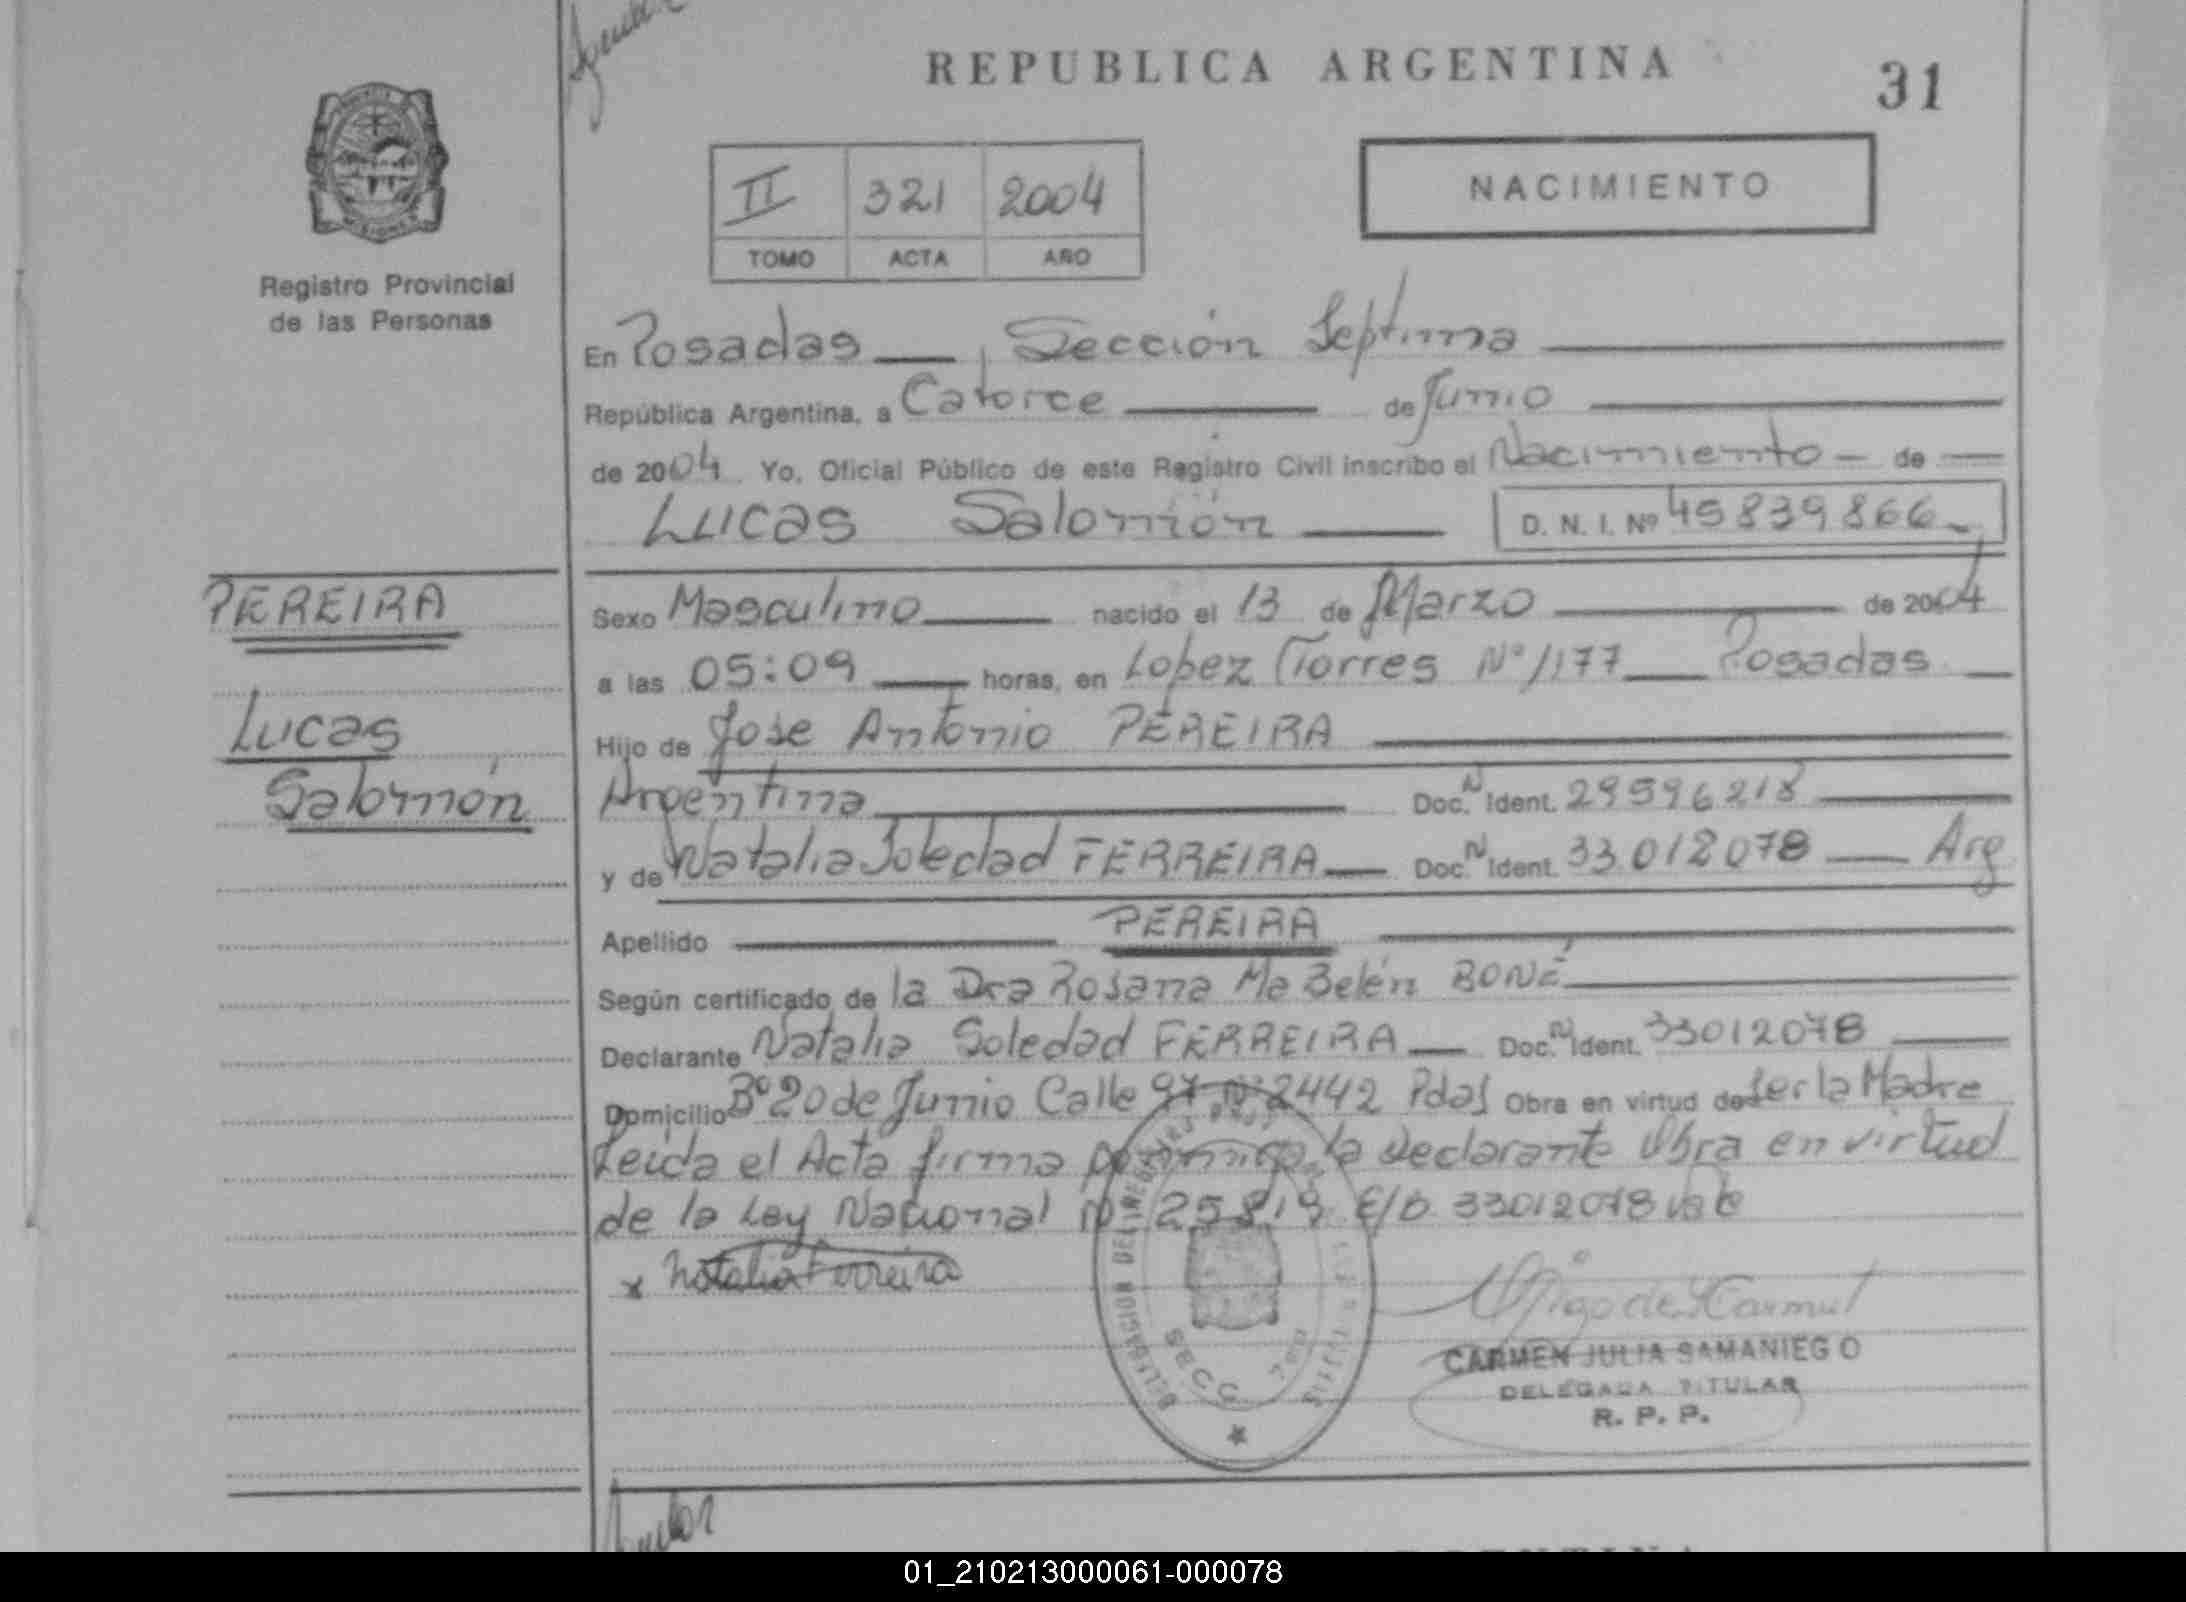 REPUBLICA ARGENTINA
31
II 321 2004
TOMO ACTA AÑO
NACIMIENTO
Registro Provincial
de las Personas
En Posadas, Sección Septima
República Argentina, a Catorce de Junio
de 2004 Yo, Oficial Público de este Registro Civil inscribo el Nacimiento de
Lucas Salomón D. N. I. Nº 45839866
PEREIRA
Lucas
Salomón
Sexo Masculino nacido el 13 de Marzo de 2004
a las 05:09 horas, en Lopez Torres Nº 1177 Posadas
Hijo de Jose Antonio PEREIRA
Argentina Doc. N Ident. 29596218
y de Natalia Soledad FERREIRA Doc. N Ident. 33.012078 Arg
Apellido PEREIRA
Según certificado de la Dra Rosana Ma Belén BONÉ
Declarante Natalia Soledad FERREIRA Doc. N Ident. 33012078
Domicilio Bº 20 de Junio Calle 97 Nº 2442 Pdas Obra en virtud de Ser la Madre
Leida el Acta firma la declarante Obra en virtud
de la Ley Nacional Nº 25819 E/D 33012078 vale
x Natalia Ferreira
DELEGACION DEL REGISTRO
SECC. 7
CARMEN JULIA SAMANIEGO
DELEGADA TITULAR
R. P. P.
01_210213000061-000078